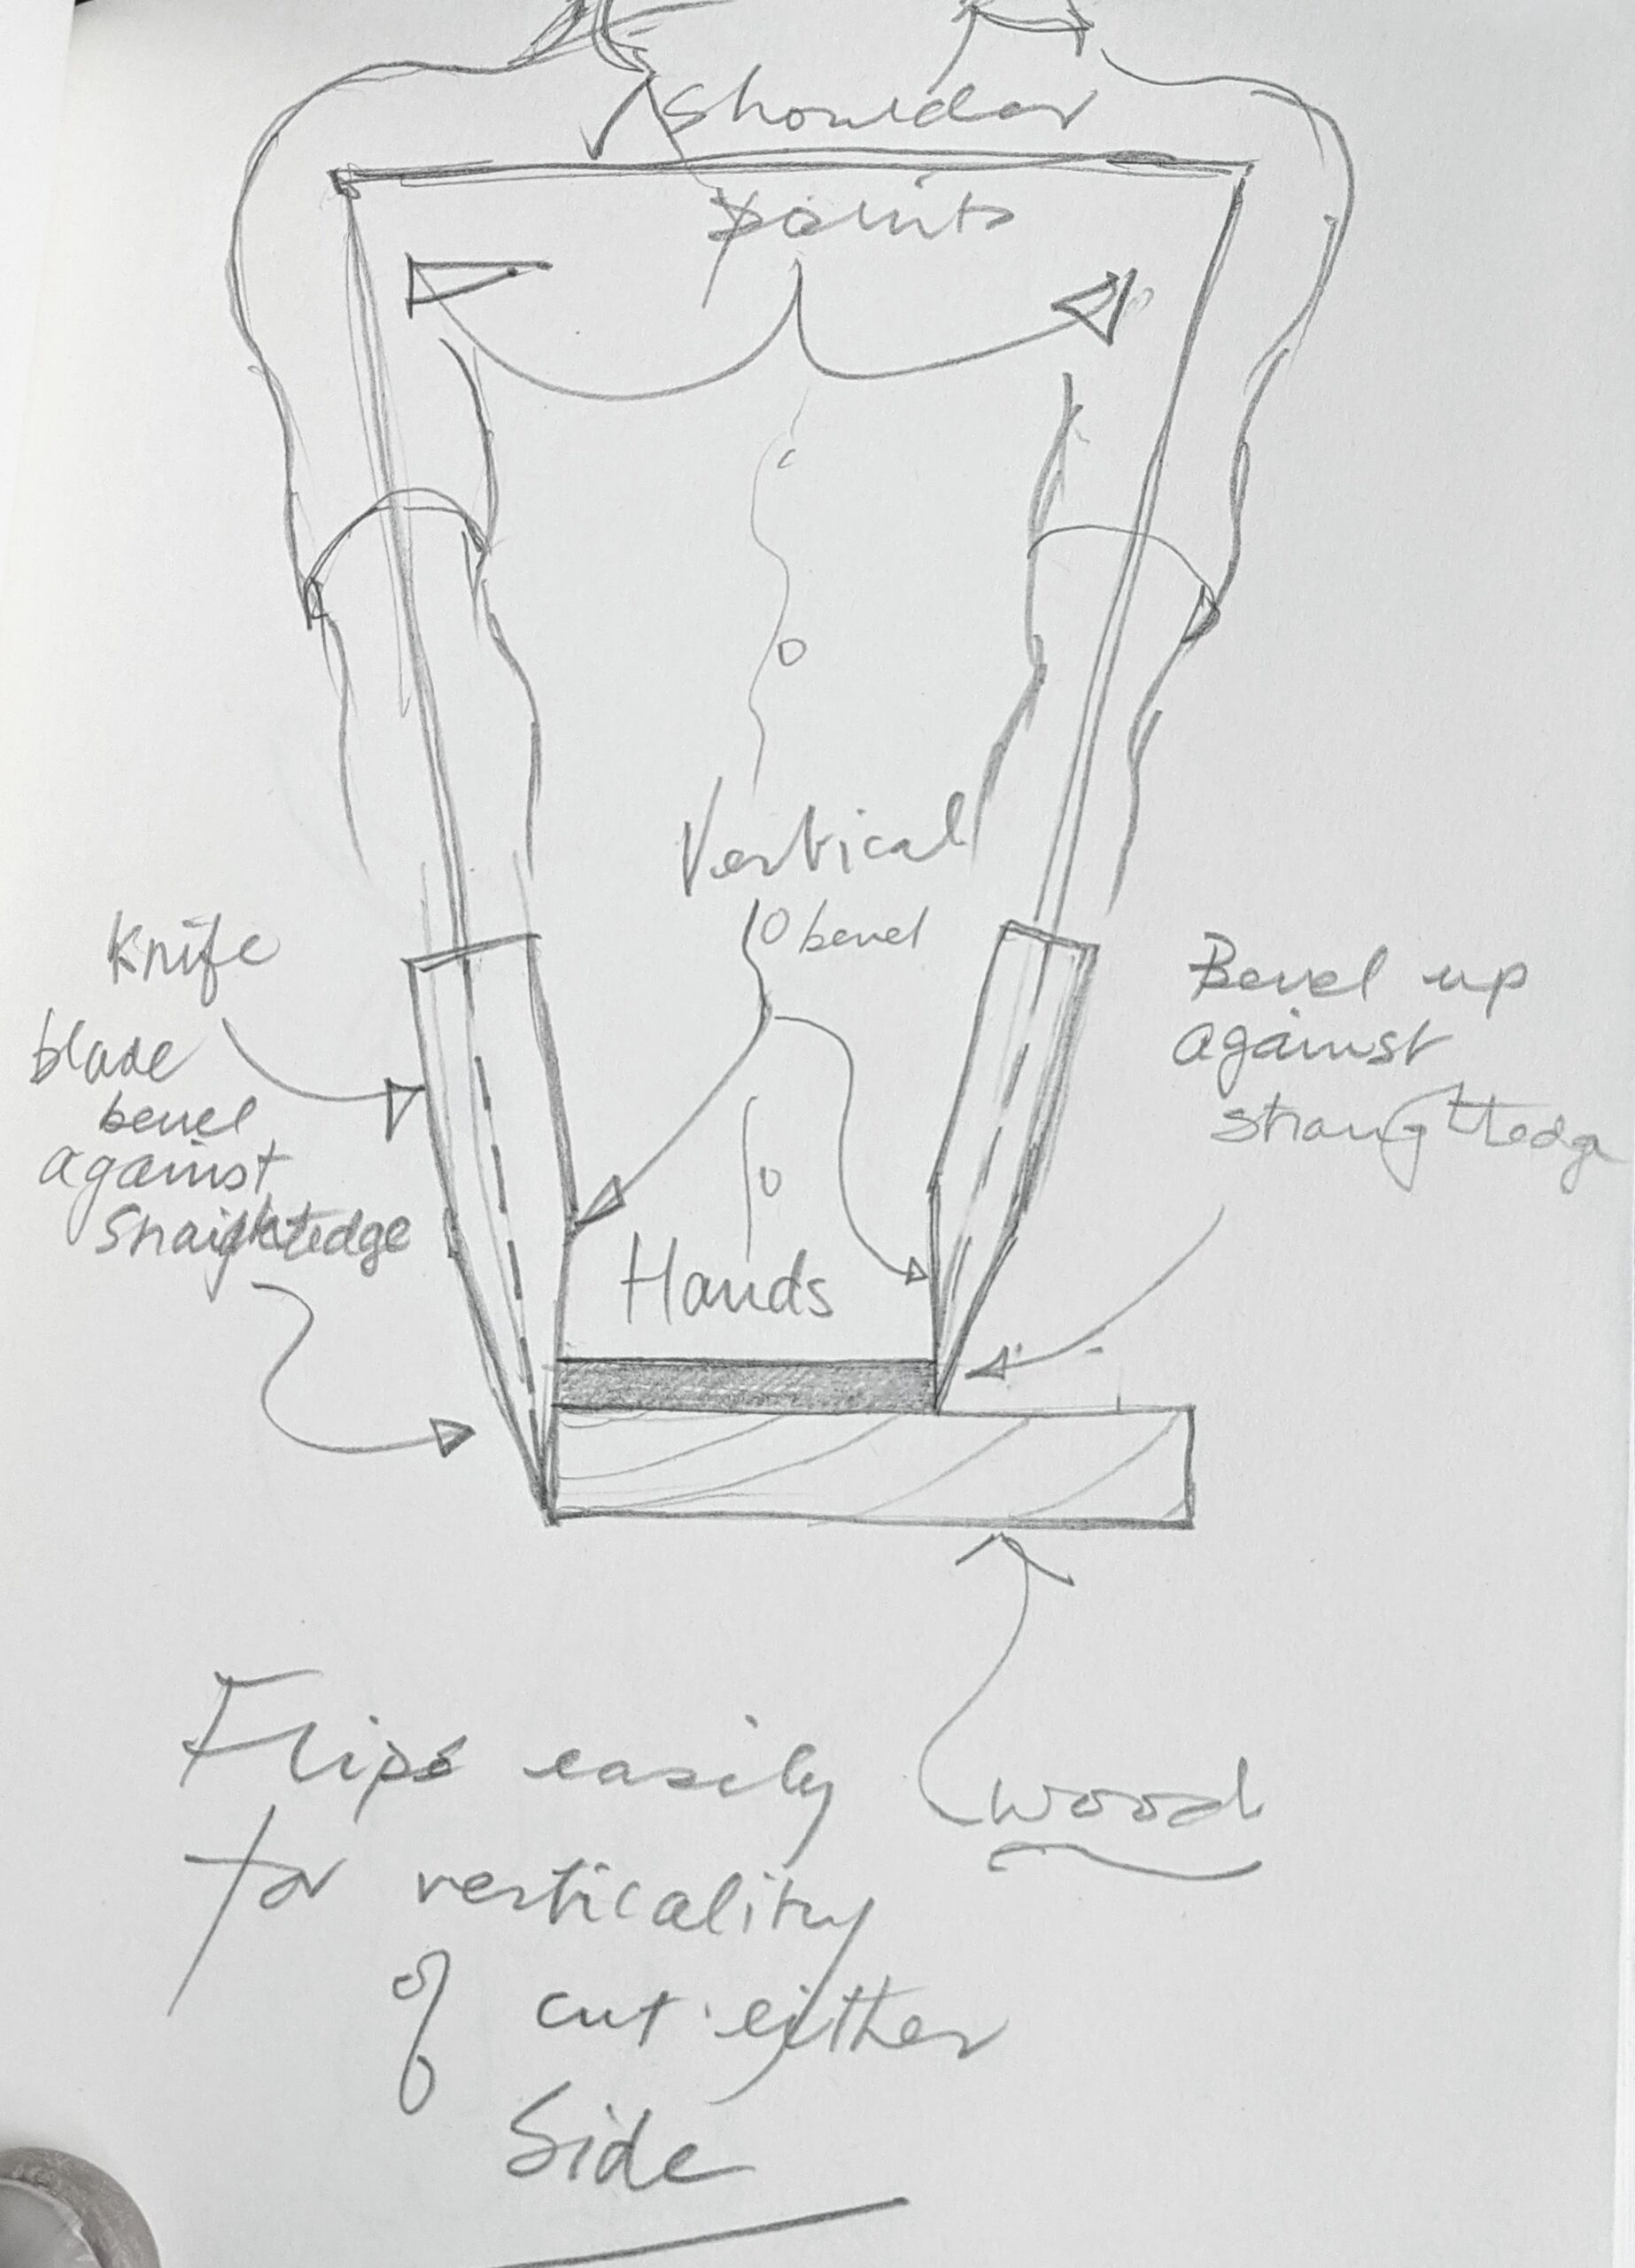 Shoulder
points
Vertical
bevel
Knife
blade
bevel
against
Straightedge
Bevel up
against
straightedge
Hands
wood
Flips easily
for verticality
of cut either
Side